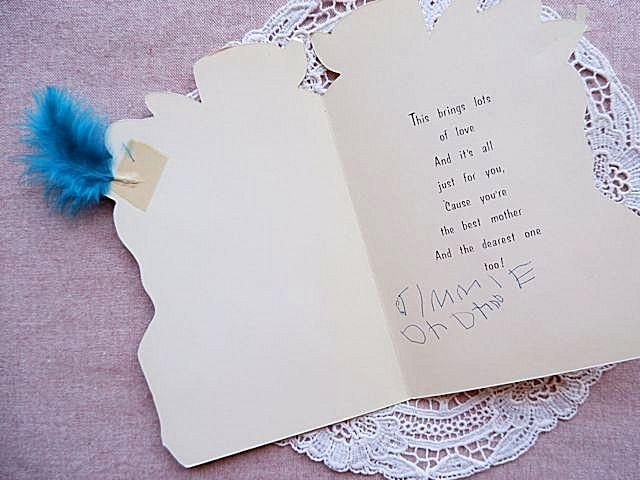 This brings lots
of love
And it's all
just for you,
'Cause you're
the best mother
And the dearest one
too!
JIMMIE